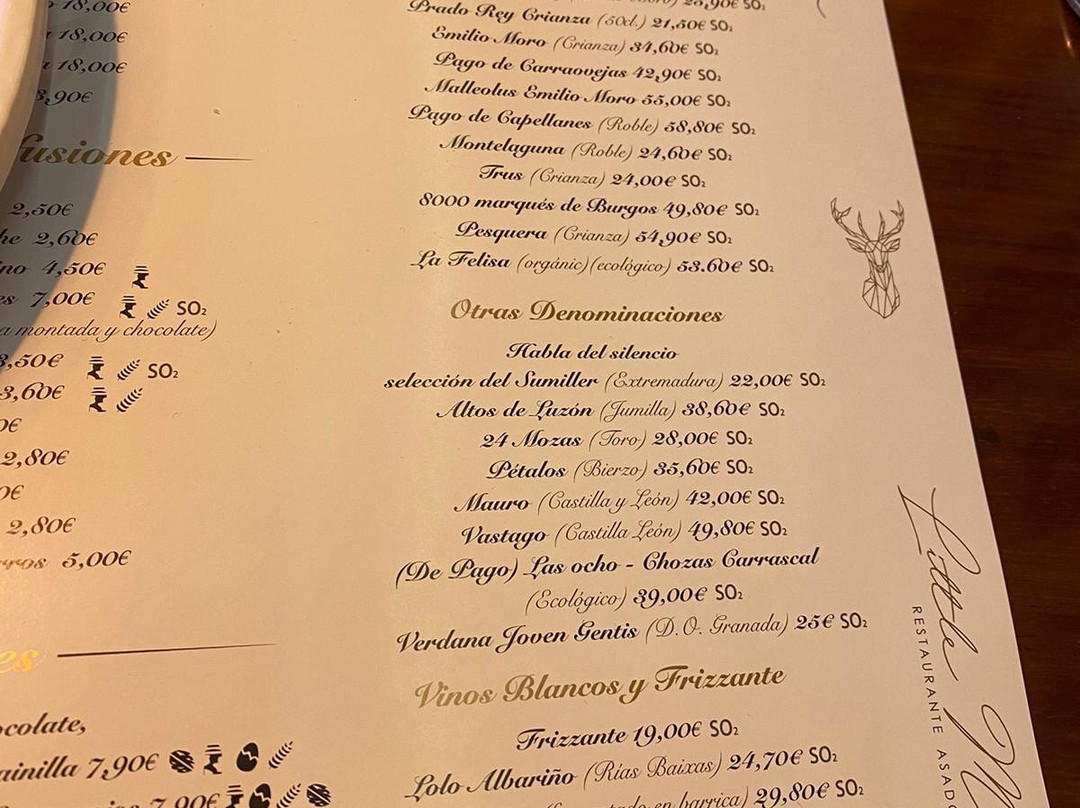 18,00€
18,00€
18,00€
3,90€
fusiones
2,50€
2,60€
4,50€
7,00€ SO₂
montada y chocolate)
3,50€ SO₂
3,60€
0€
2,80€
0€
2,80€
5,00€
es
ocolate,
ainilla 7,90€
7,90€
Prado Rey Crianza (50cl.) 21,50€ SO₂
Emilio Moro (Crianza) 34,60€ SO₂
Pago de Carraovejas 42,90€ SO₂
Malleolus Emilio Moro 55,00€ SO₂
Pago de Capellanes (Roble) 58,80€ SO₂
Montelaguna (Roble) 24,60€ SO₂
Trus (Crianza) 24,00€ SO₂
8000 marqués de Burgos 49,80€ SO₂
Pesquera (Crianza) 54,90€ SO₂
La Felisa (orgánic)(ecológico) 53.60€ SO₂
Otras Denominaciones
Habla del silencio
selección del Sumiller (Extremadura) 22,00€ SO₂
Altos de Luzón (Jumilla) 38,60€ SO₂
24 Mozas (Toro) 28,00€ SO₂
Pétalos (Bierzo) 35,60€ SO₂
Mauro (Castilla y León) 42,00€ SO₂
Vastago (Castilla León) 49,80€ SO₂
(De Pago) Las ocho - Chozas Carrascal
(Ecológico) 39,00€ SO₂
Verdana Joven Gentis (D.O. Granada) 25€ SO₂
Vinos Blancos y Frizzante
Frizzante 19,00€ SO₂
Lolo Albariño (Rías Baixas) 24,70€ SO₂
en barrica) 29,80€ SO₂
Little
RESTAURANTE ASADO